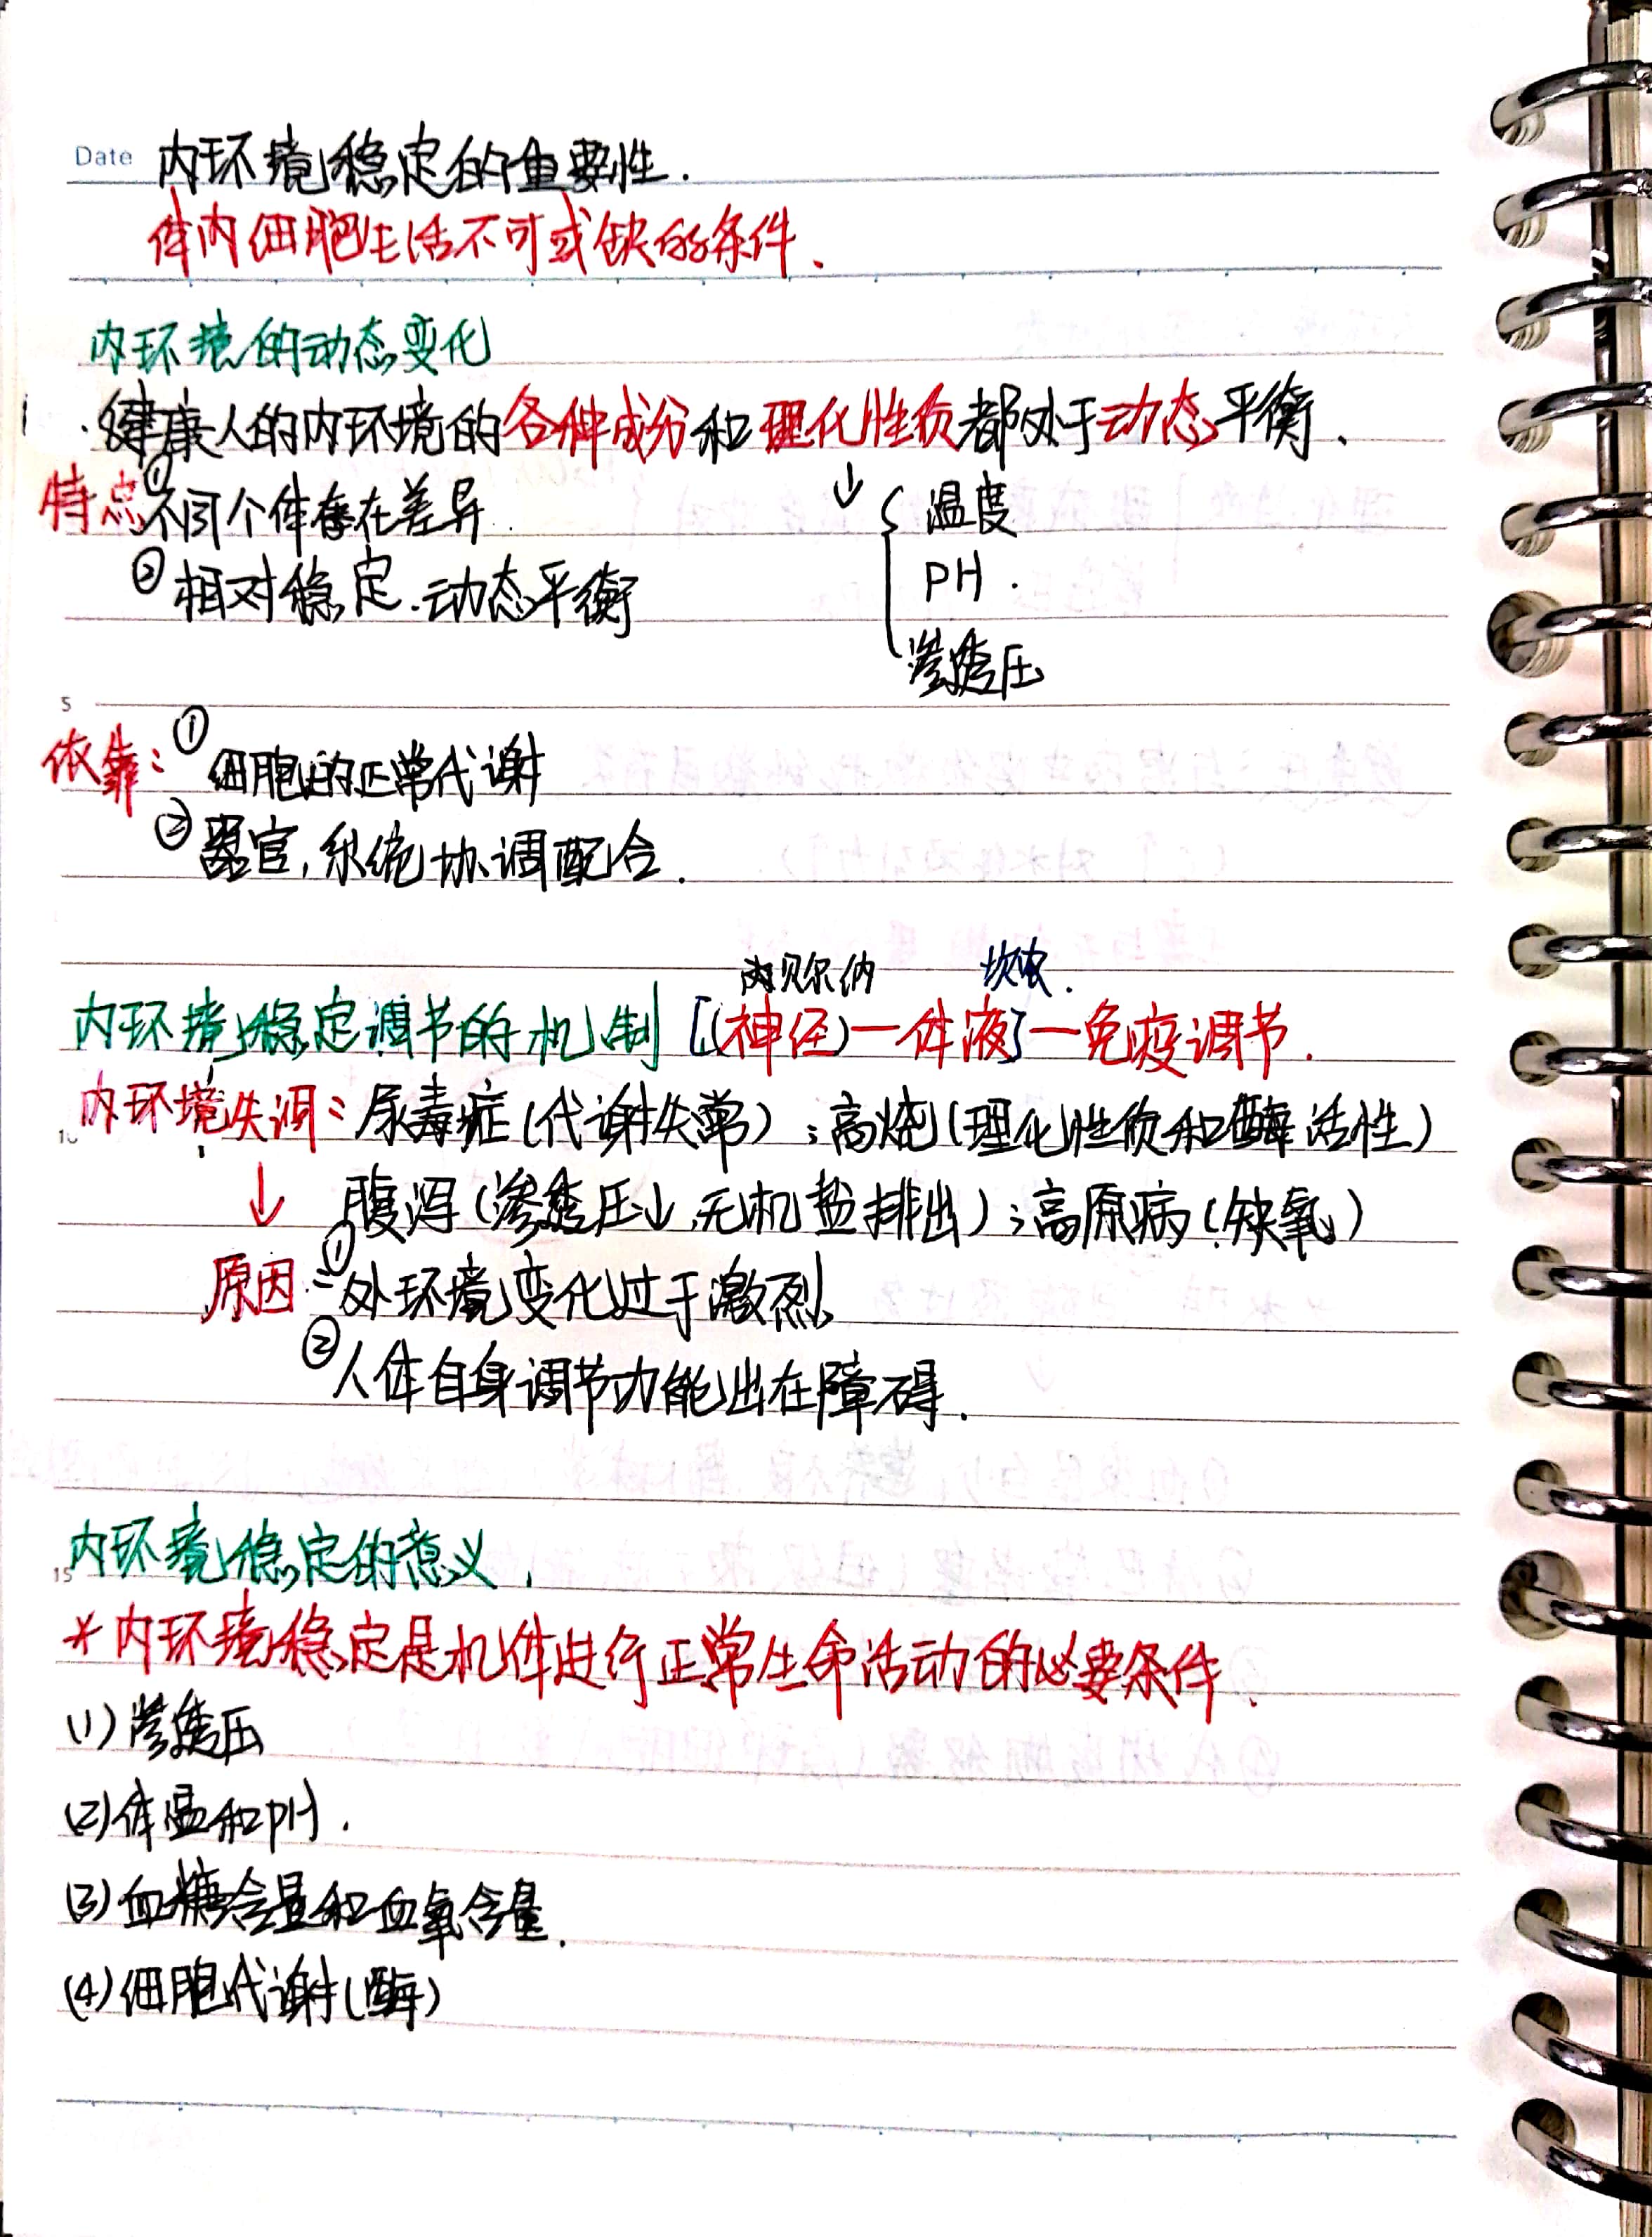 Date 内环境稳定的重要性.
体内细胞生活不可或缺的条件、
内环境的动态变化
健康人的内环境的各种成分和理化性质都处于动态平衡、
特点 ①不同个体存在差异 ↓ { 温度
②相对稳定.动态平衡 PH.
渗透压
5
依靠: ①细胞的正常代谢
②器官,系统协调配合.
贝尔纳 坎农.
内环境稳定调节的机制 [(神经)一体液]一免疫调节.
内环境失调: 尿毒症(代谢失常);高烧(理化性质和酶活性)
10
↓ 腹泻(渗透压↓,无机盐排出);高原病(缺氧)
原因: ①外环境变化过于激烈
②人体自身调节功能出在障碍.
内环境稳定的意义.
15
*内环境稳定是机体进行正常生命活动的必要条件.
(1)渗透压
(2)体温和PH.
(3)血糖含量和血氧含量.
(4)细胞代谢(酶)